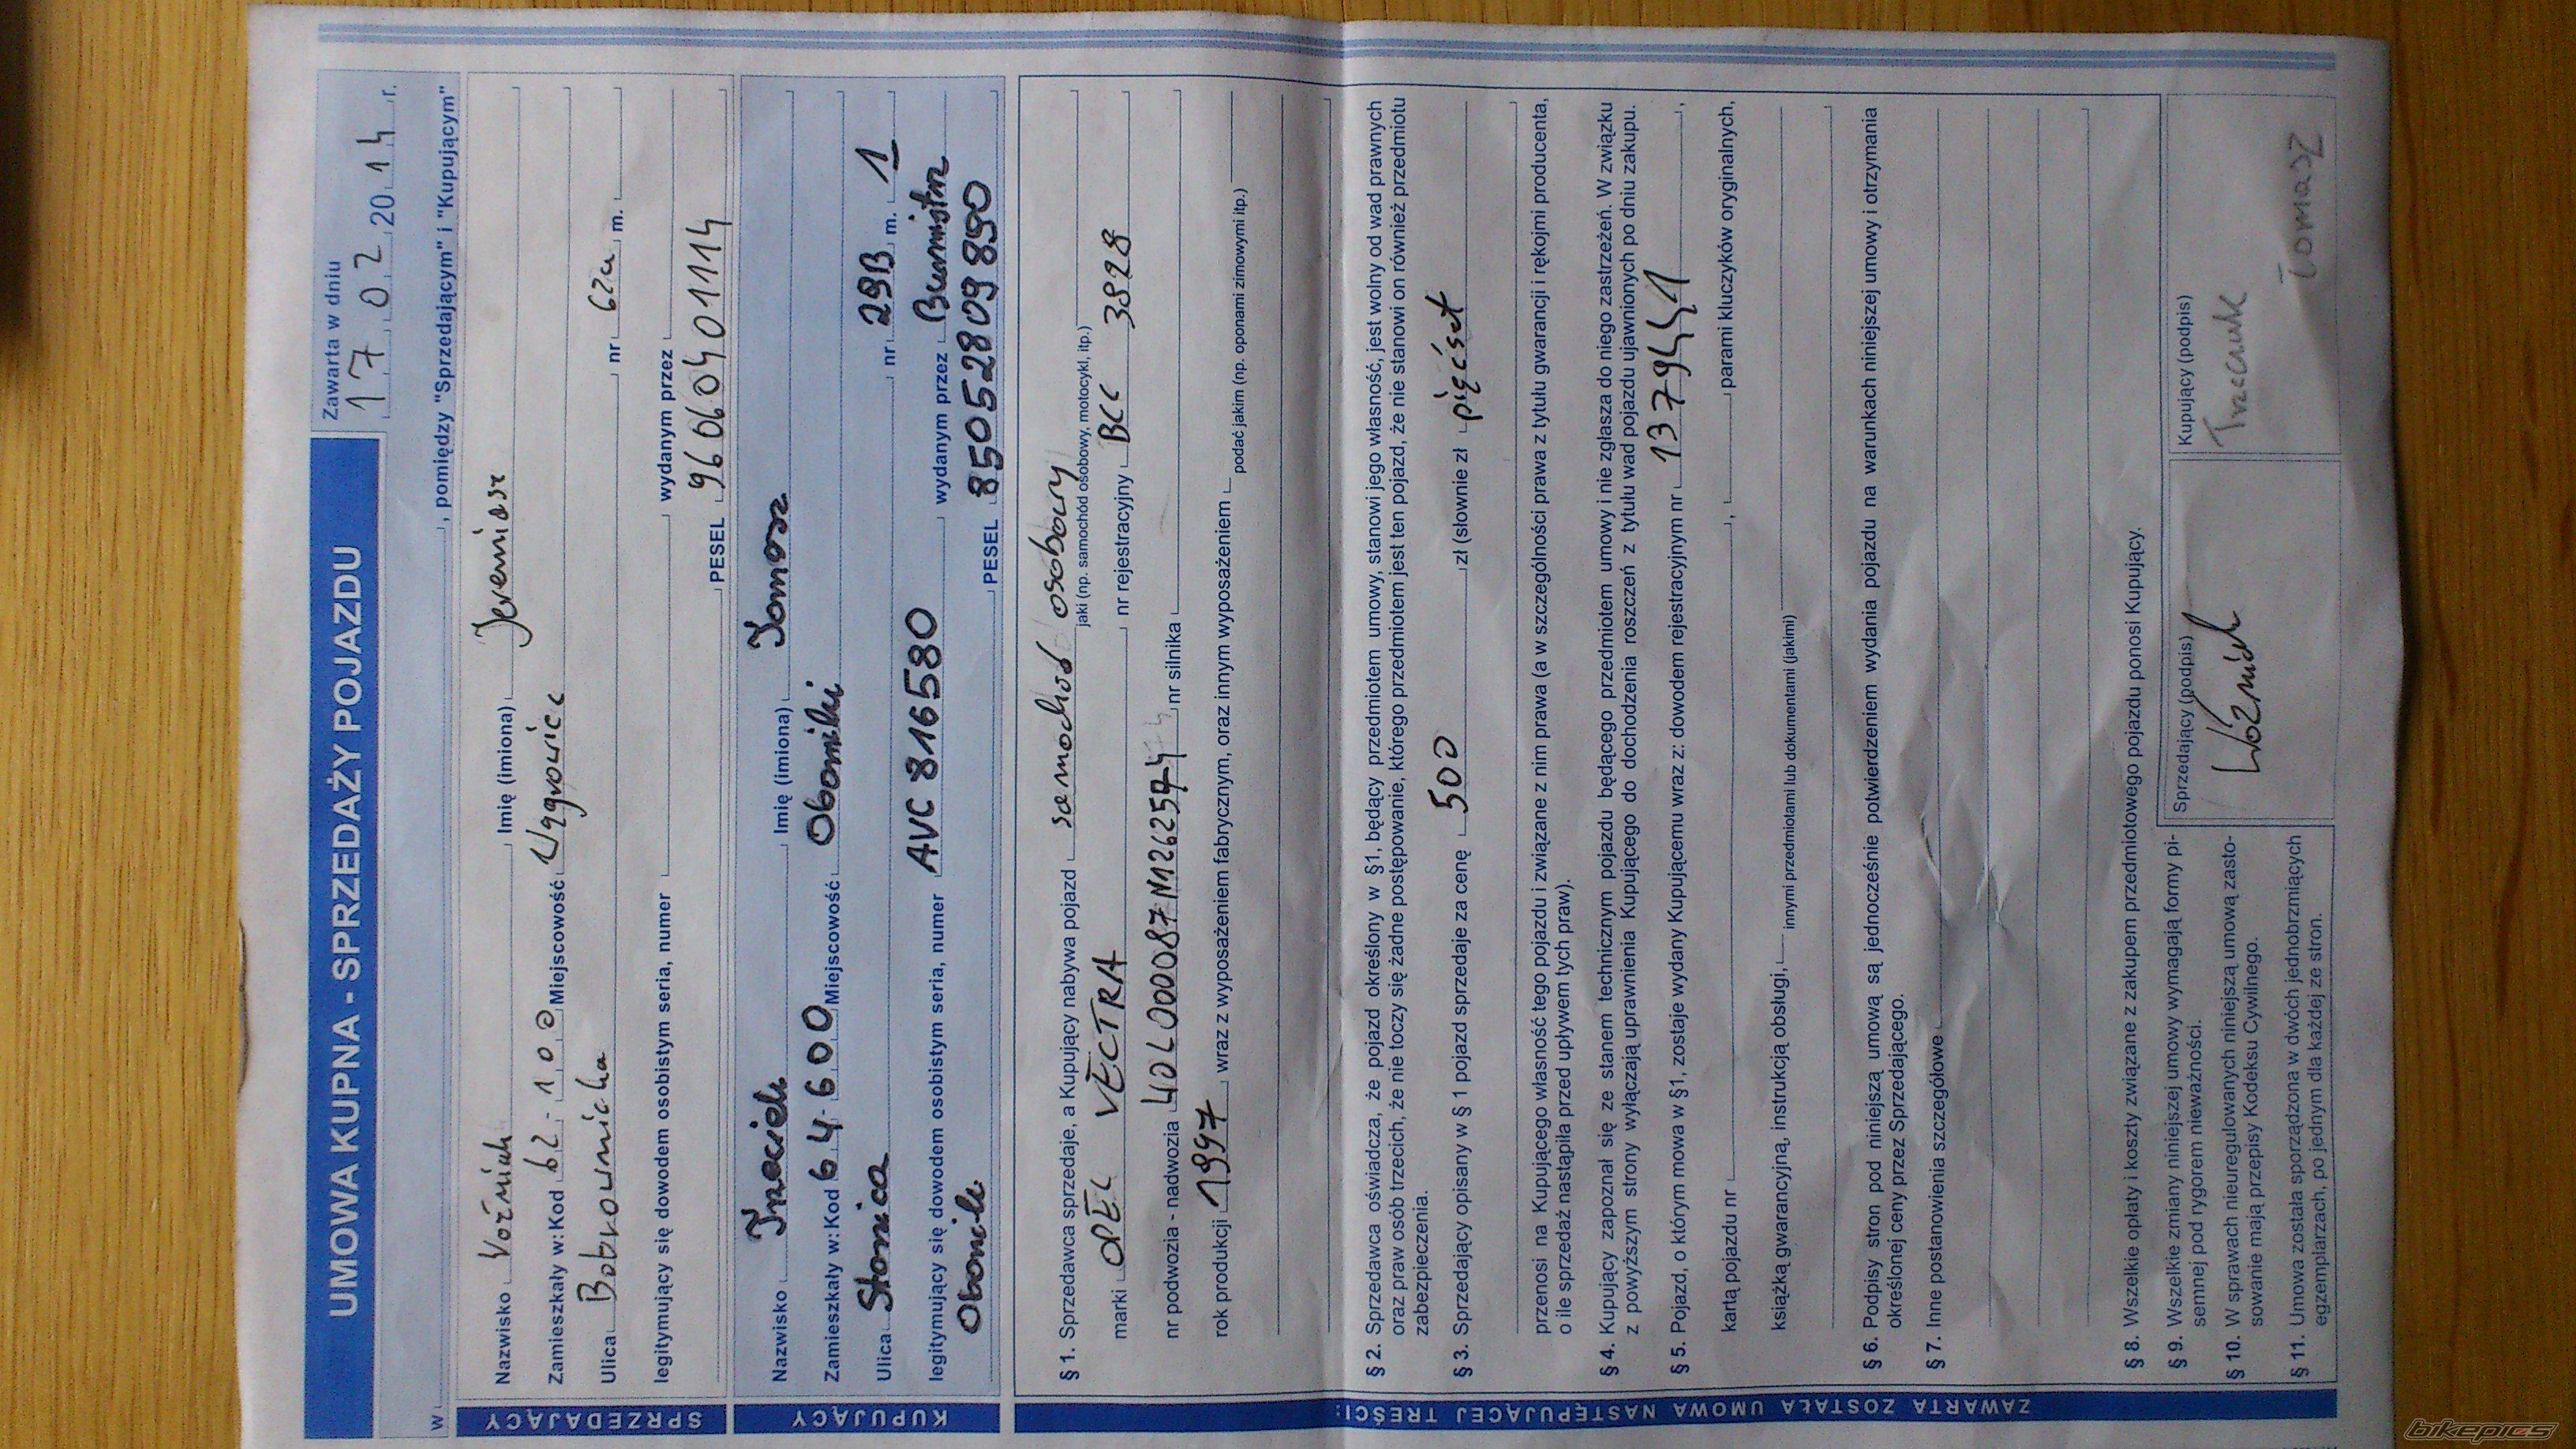 UMOWA KUPNA - SPRZEDAŻY POJAZDU
Zawarta w dniu
17.02.2014 r.
w , pomiędzy "Sprzedającym" i "Kupującym"
SPRZEDAJĄCY
Nazwisko Woźniak Imię (imiona) Jeremiasz
Zamieszkały w: Kod 62-100 Miejscowość Wągrowiec
Ulica Bobrownicka nr 62a m.
legitymujący się dowodem osobistym seria, numer wydanym przez
PESEL 96060401114
KUPUJĄCY
Nazwisko Trzeciak Imię (imiona) Tomasz
Zamieszkały w: Kod 64-600 Miejscowość Oborniki
Ulica nr 29B m. 1
legitymujący się dowodem osobistym seria, numer AVC 816580 wydanym przez Burmistrz
PESEL 85052809890
ZAWARTA ZOSTAŁA UMOWA NASTĘPUJĄCEJ TREŚCI:
§ 1. Sprzedawca sprzedaje, a Kupujący nabywa pojazd samochod osobowy
jaki (np. samochód osobowy, motocykl, itp.)
marki OPEL VECTRA nr rejestracyjny 3828
nr podwozia - nadwozia nr silnika
rok produkcji 1997 wraz z wyposażeniem fabrycznym, oraz innym wyposażeniem
podać jakim (np. oponami zimowymi itp.)
§ 2. Sprzedawca oświadcza, że pojazd określony w §1, będący przedmiotem umowy, stanowi jego własność, jest wolny od wad prawnych
oraz praw osób trzecich, że nie toczy się żadne postępowanie, którego przedmiotem jest ten pojazd, że nie stanowi on również przedmiotu
zabezpieczenia.
§ 3. Sprzedający opisany w § 1 pojazd sprzedaje za cenę 500 zł (słownie zł pięćset
przenosi na Kupującego własność tego pojazdu i związane z nim prawa (a w szczególności prawa z tytułu gwarancji i rękojmi producenta,
o ile sprzedaż nastąpiła przed upływem tych praw).
§ 4. Kupujący zapoznał się ze stanem technicznym pojazdu będącego przedmiotem umowy i nie zgłasza do niego zastrzeżeń. W związku
z powyższym strony wyłączają uprawnienia Kupującego do dochodzenia roszczeń z tytułu wad pojazdu ujawnionych po dniu zakupu.
§ 5. Pojazd, o którym mowa w §1, zostaje wydany Kupującemu wraz z: dowodem rejestracyjnym nr 1379441 ,
kartą pojazdu nr , parami kluczyków oryginalnych,
książką gwarancyjną, instrukcją obsługi,
innymi przedmiotami lub dokumentami (jakimi)
§ 6. Podpisy stron pod niniejszą umową są jednocześnie potwierdzeniem wydania pojazdu na warunkach niniejszej umowy i otrzymania
określonej ceny przez Sprzedającego.
§ 7. Inne postanowienia szczegółowe
§ 8. Wszelkie opłaty i koszty związane z zakupem przedmiotowego pojazdu ponosi Kupujący.
§ 9. Wszelkie zmiany niniejszej umowy wymagają formy pi-
semnej pod rygorem nieważności.
§ 10. W sprawach nieuregulowanych niniejszą umową zasto-
sowanie mają przepisy Kodeksu Cywilnego.
§ 11. Umowa została sporządzona w dwóch jednobrzmiących
egzemplarzach, po jednym dla każdej ze stron.
Sprzedający (podpis)
Woźniak
Kupujący (podpis)
Trzeciak Tomasz
bikepics